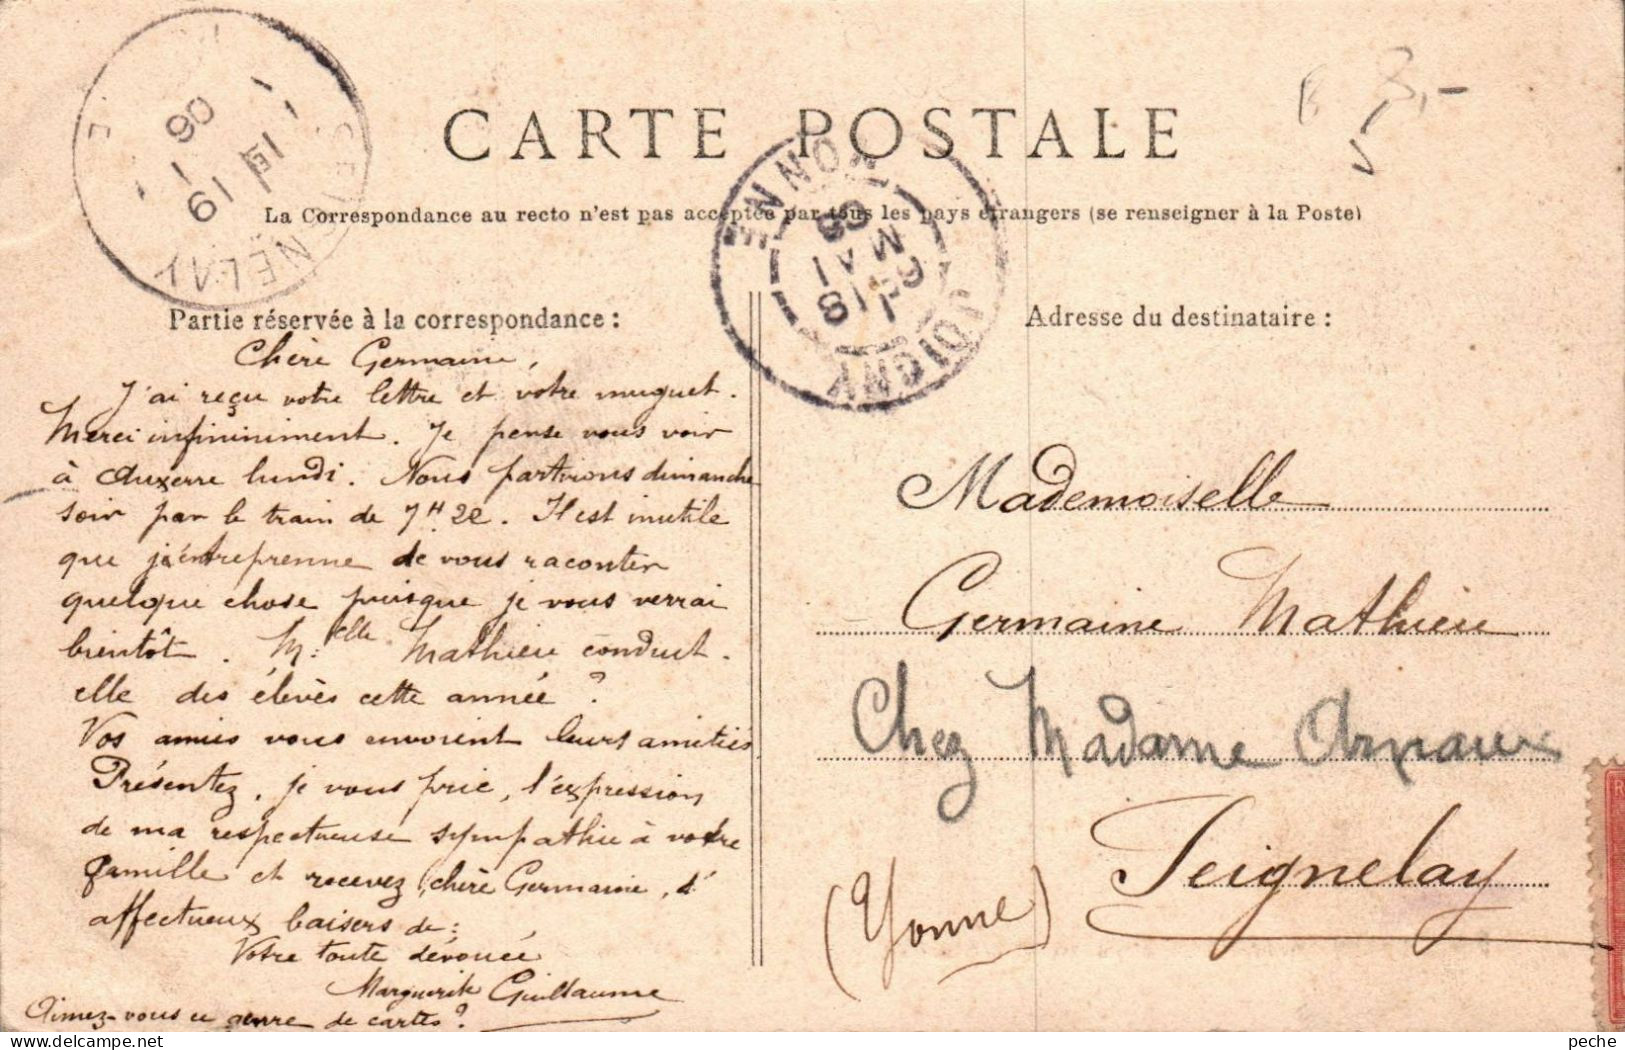 CARTE POSTALE
La Correspondance au recto n'est pas acceptée par tous les pays étrangers (se renseigner à la Poste)
Partie réservée à la correspondance :
Chère Germaine,
J'ai reçu votre lettre et votre muguet.
Merci infininiment. Je pense vous voir
à Auxerre lundi. Nous partirions dimanche
soir par le train de 7H 22. Il est inutile
que j'entreprenne de vous raconter
quelque chose puisque je vous verrai
bientôt. M:elle Mathieu conduit-
elle des élèves cette année ?
Vos amies vous envoient leurs amitiés
Présentez, je vous prie, l'expression
de ma respectueuse sympathie à votre
famille et recevez, chère Germaine, d'
affectueux baisers de :
Votre toute dévouée
Marguerite Guillaume
Aimez-vous ce genre de cartes ?
Adresse du destinataire :
Mademoiselle
Germaine Mathieu
Chez Madame Arnaux
Seignelay
(Yonne)
YONNE
MAI
SEIGNELAY
19
06
peche